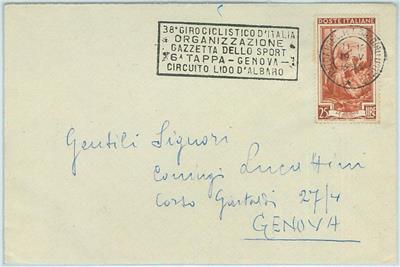 38° GIRO CICLISTICO D'ITALIA
ORGANIZZAZIONE
GAZZETTA DELLO SPORT
6ª TAPPA - GENOVA -
CIRCUITO LIDO D'ALBARO
POSTE ITALIANE
25 LIRE
Gentili Signori
Coniugi Lucattini
Corso Gastaldi 27/4
GENOVA